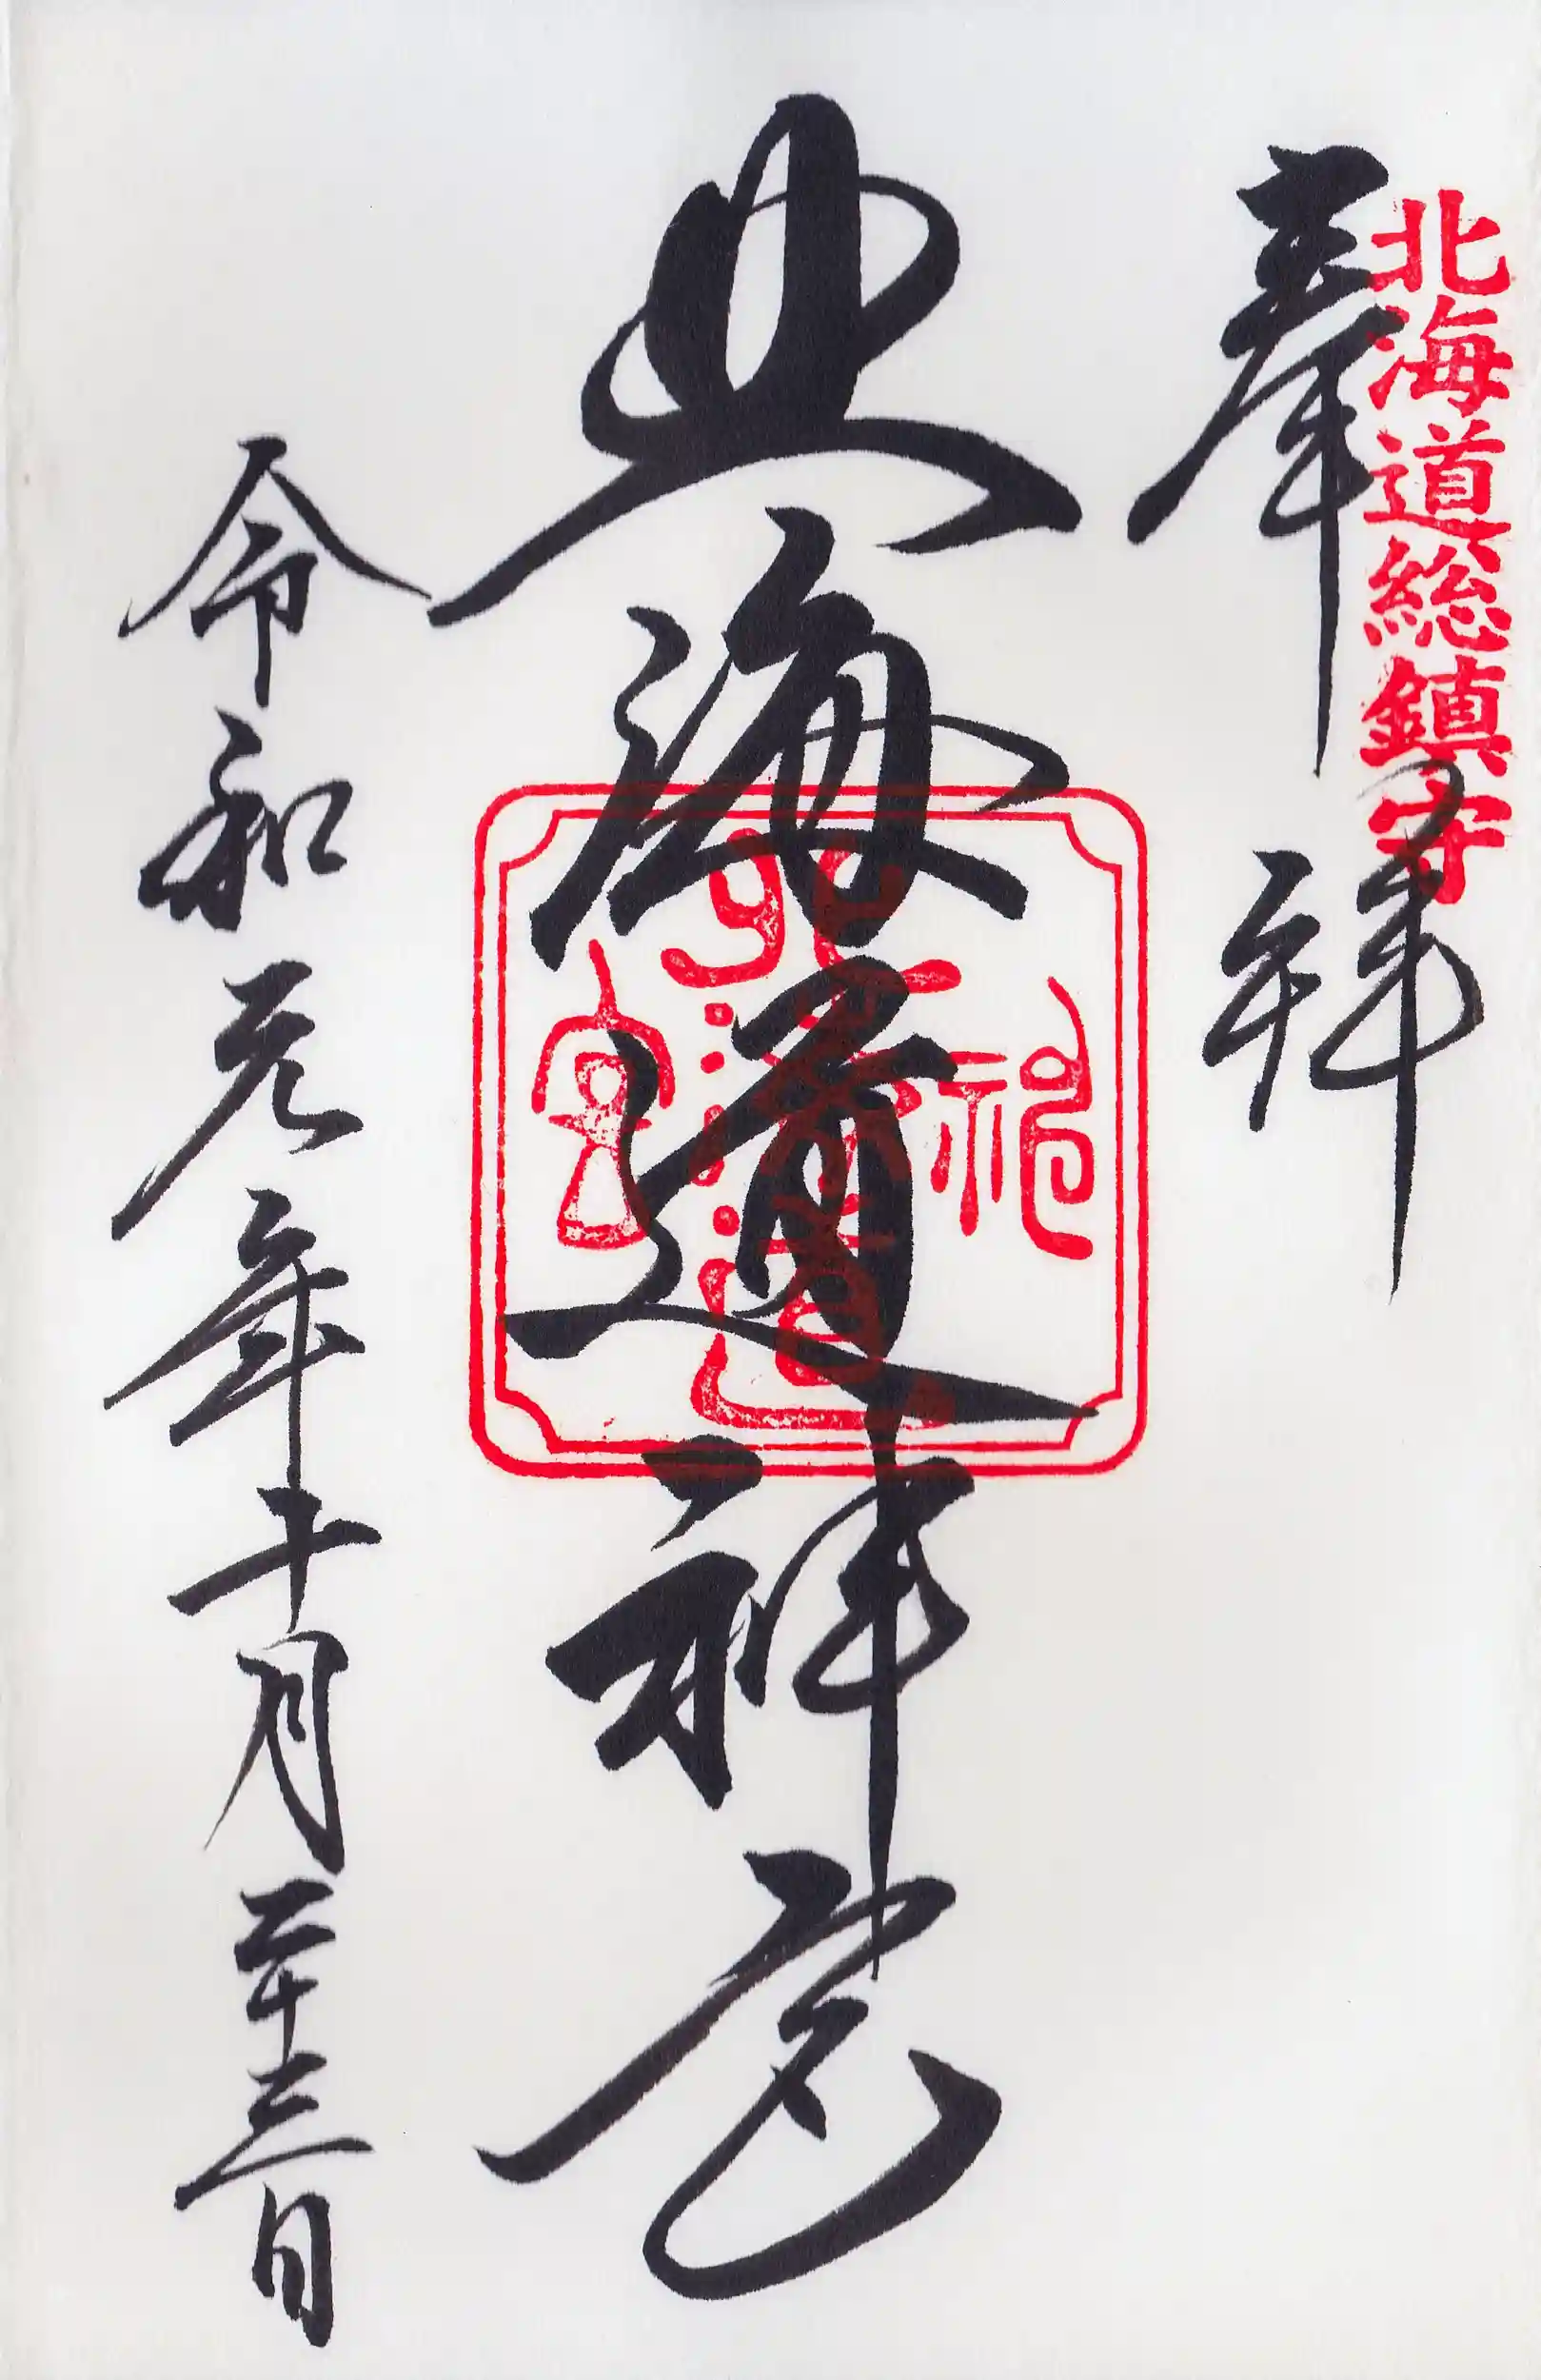 北海道総鎮守
奉拝
北海道神宮
北海道神宮
令和元年十月二十三日